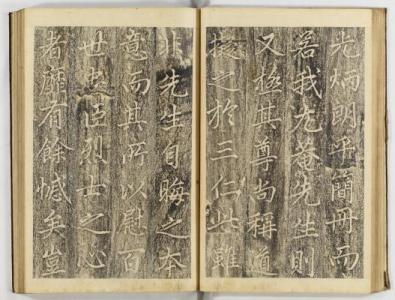 光炳明乎簡冊而
若我尤菴先生則
又極其尊尚稱道
擬之於三仁此雖
非先生自晦之本
意而其所以慰百
世忠臣烈士之心
者靡有餘憾矣豈